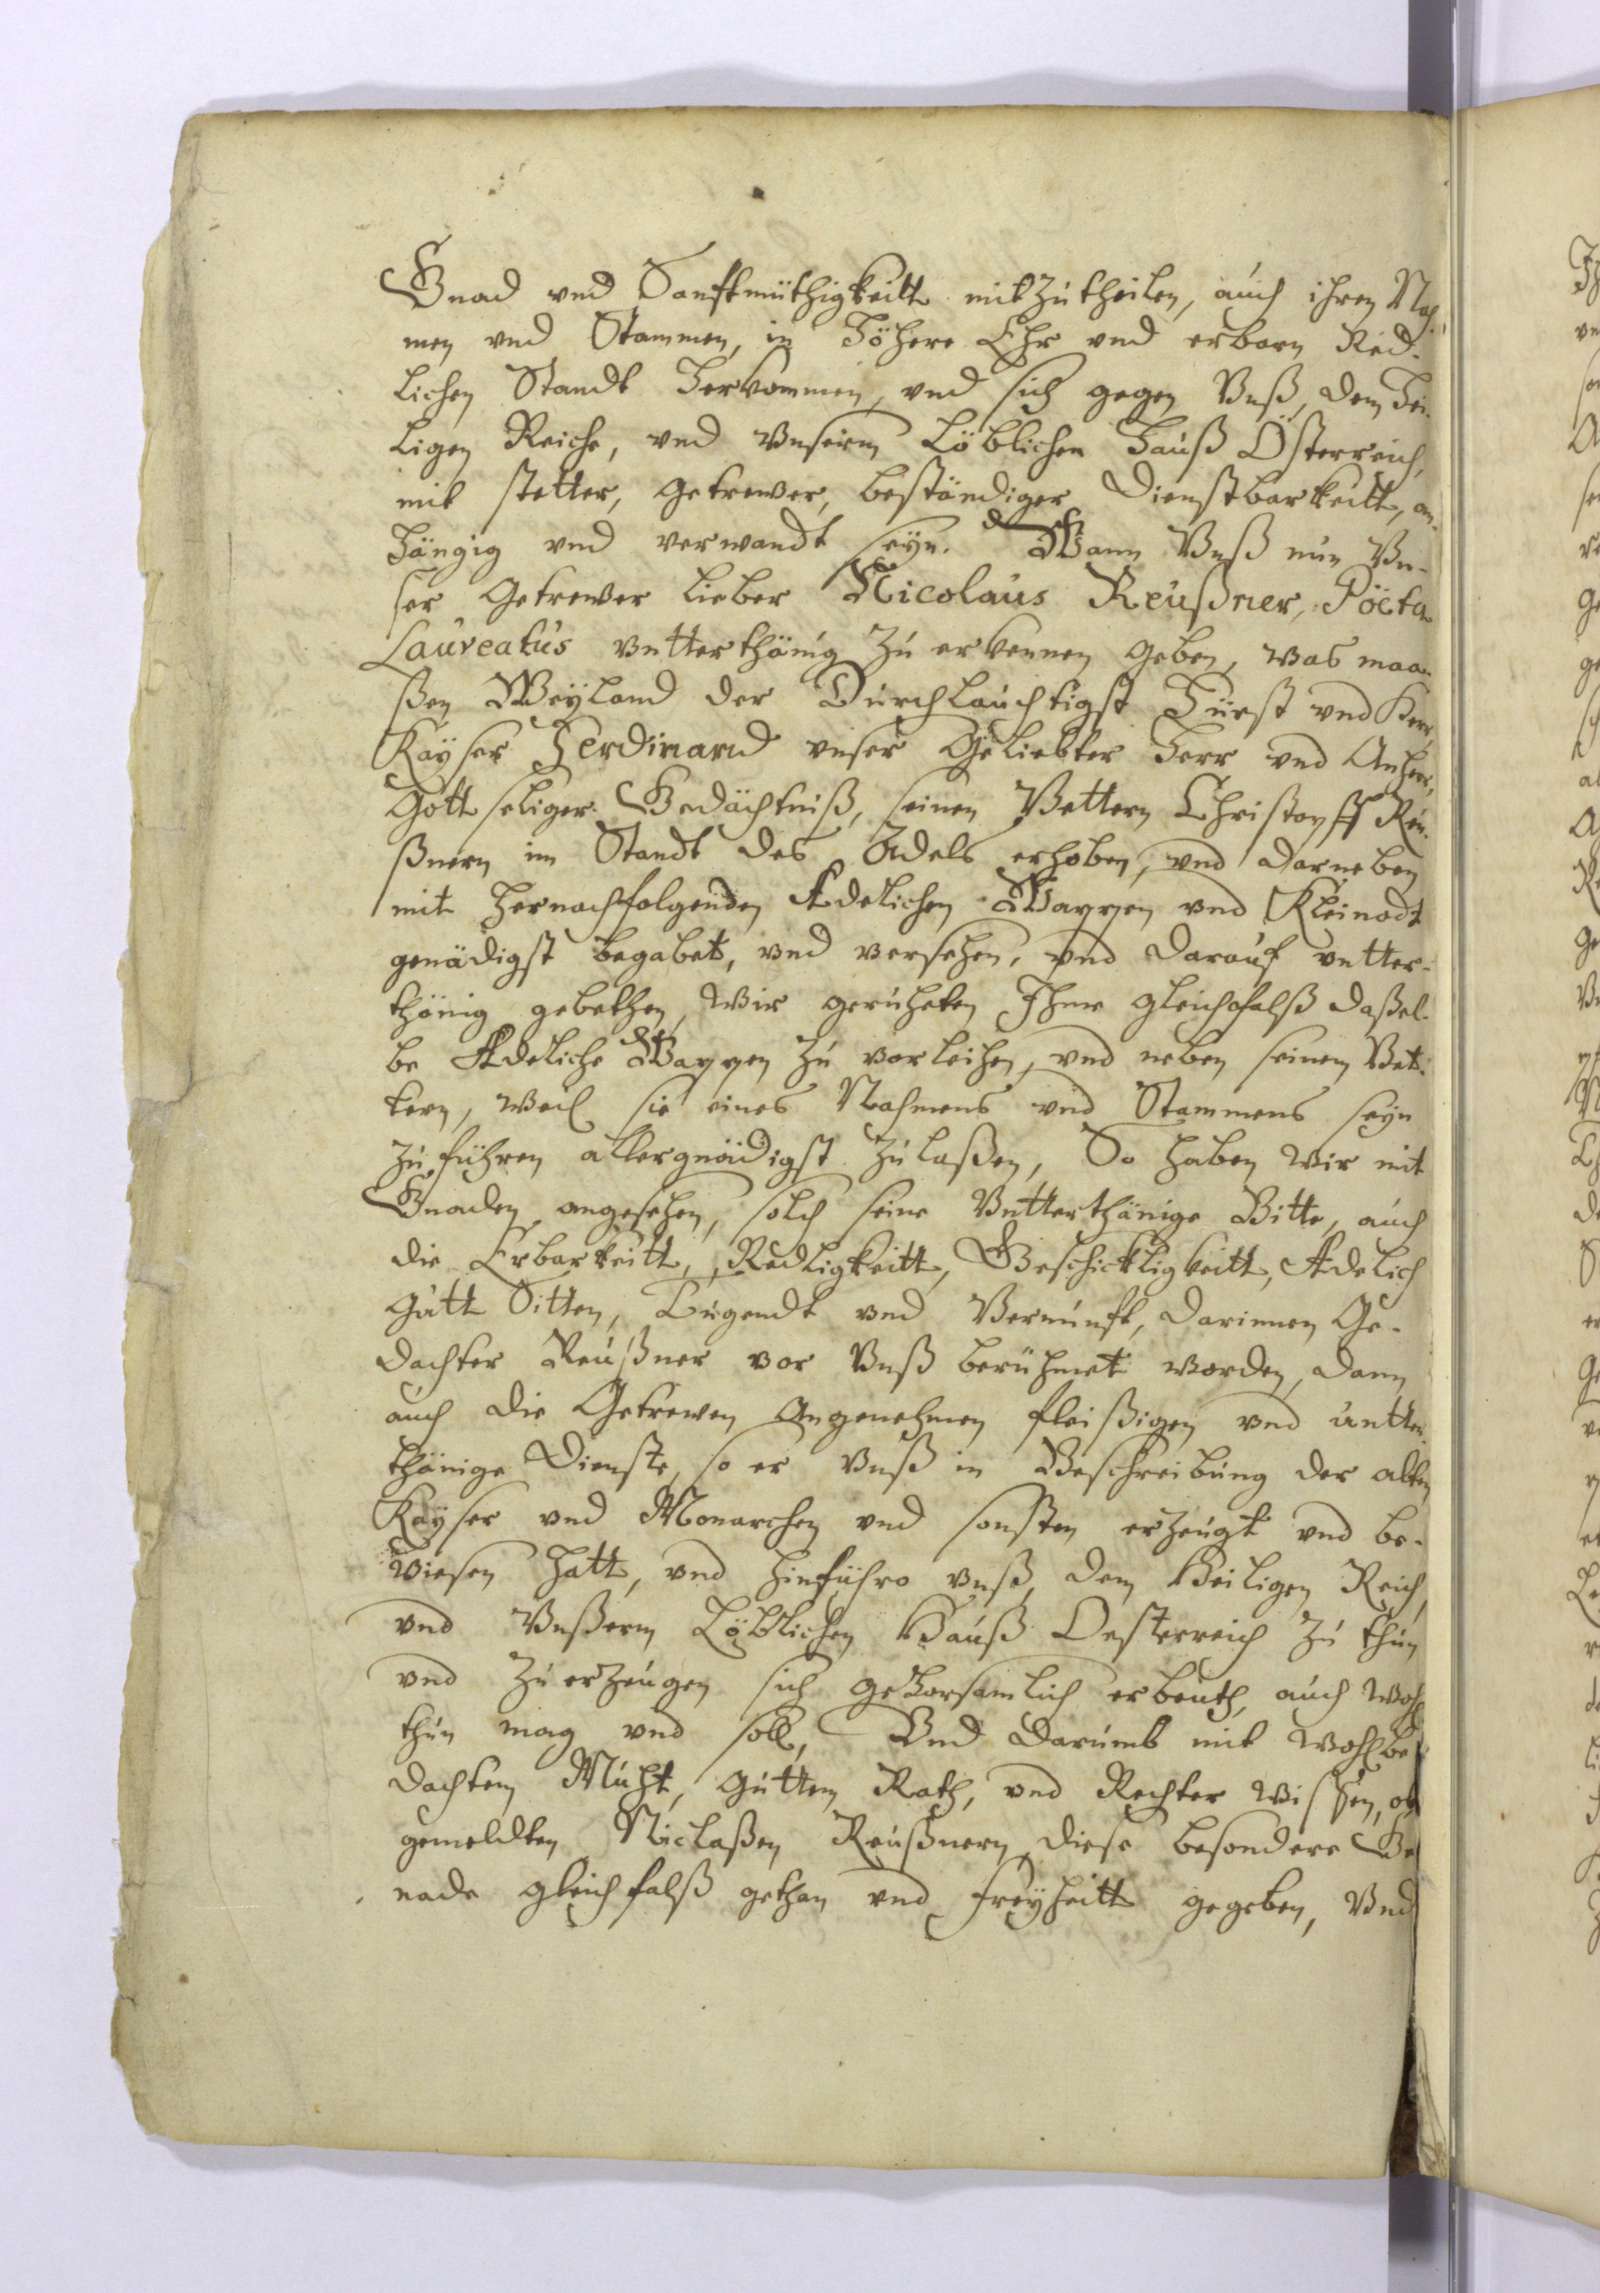 Gnad vnd Sanftmüthigkeitt mitzutheilen, auch ihren Nah-
men vnd Stammen, in Höhere Ehr vnd erbarn Red-
lichen Standt Herkommen, vnd sich gegen Vnß, dem Hei-
ligen Reiche, vnd Vnserm Löblichen Hauß Österreich,
mit stetter, getrewer, beständiger Dienstbarkeitt, an-
hängig vnd verwandt seyn. Wann Vnß nun Vn-
ser Getrewer lieber Nicolaus Reußner, Poëta
Laureatus vntterthänig zu erkennen geben, was maa-
ßen Weyland der Durchlauchtigst Fürst vnd Herr,
Kayser Ferdinand vnser Geliebter Herr vnd Anherr,
Gott seliger Gedächtniß, seinen Vettern Christopff Reu-
ßnern im Standt des Adels erhoben, vnd darneben
mit Hernachfolgenden Adelichen Wappen vnd Kleinodt
genädigst begabet, vnd versehen, vnd darauf vntter-
thänig gebethen, Wir geruheten Ihme gleichfalß daßel-
be Adeliche Wappen zu vorleihen, vnd neben seinem Vet-
tern, weil sie eines Nahmens vnd Stammens seyn
zu führen allergnädigst zulaßen, So haben wir mit
Gnaden angesehen, solch seine Vntterthänige Bitte, auch
die Erbarkeitt, Redligkeitt, Geschickligkeitt, Adelich
gutt Sitten, Tugendt vnd Vernunft, darinnen Ge-
dachter Reußner vor Vnß berühmet worden, dann
auch die Getrewen Angenehmen fleißigen vnd untter-
thänige Dienste, so er Vnß in Beschreibung der alten
Kayser vnd Monarchen vnd sonsten erzeugt vnd be-
wiesen hatt, vnd hinführo vnß, dem Heiligen Reich,
vnd Vnßerm Löblichen Hauß Oesterreich zu thun
vnd zu erzeugen sich gehorsamlich erbeuth, auch wohl
thun mag vnd soll, Vnd darumb mit wohlbe
dachtem Muht, gutten Rath, vnd Rechter wissen, ob
gemeldten Niclaßen Reußnern diese besondere Ge
nade gleichfalß gethan vnd freyheitt gegeben, Vnd